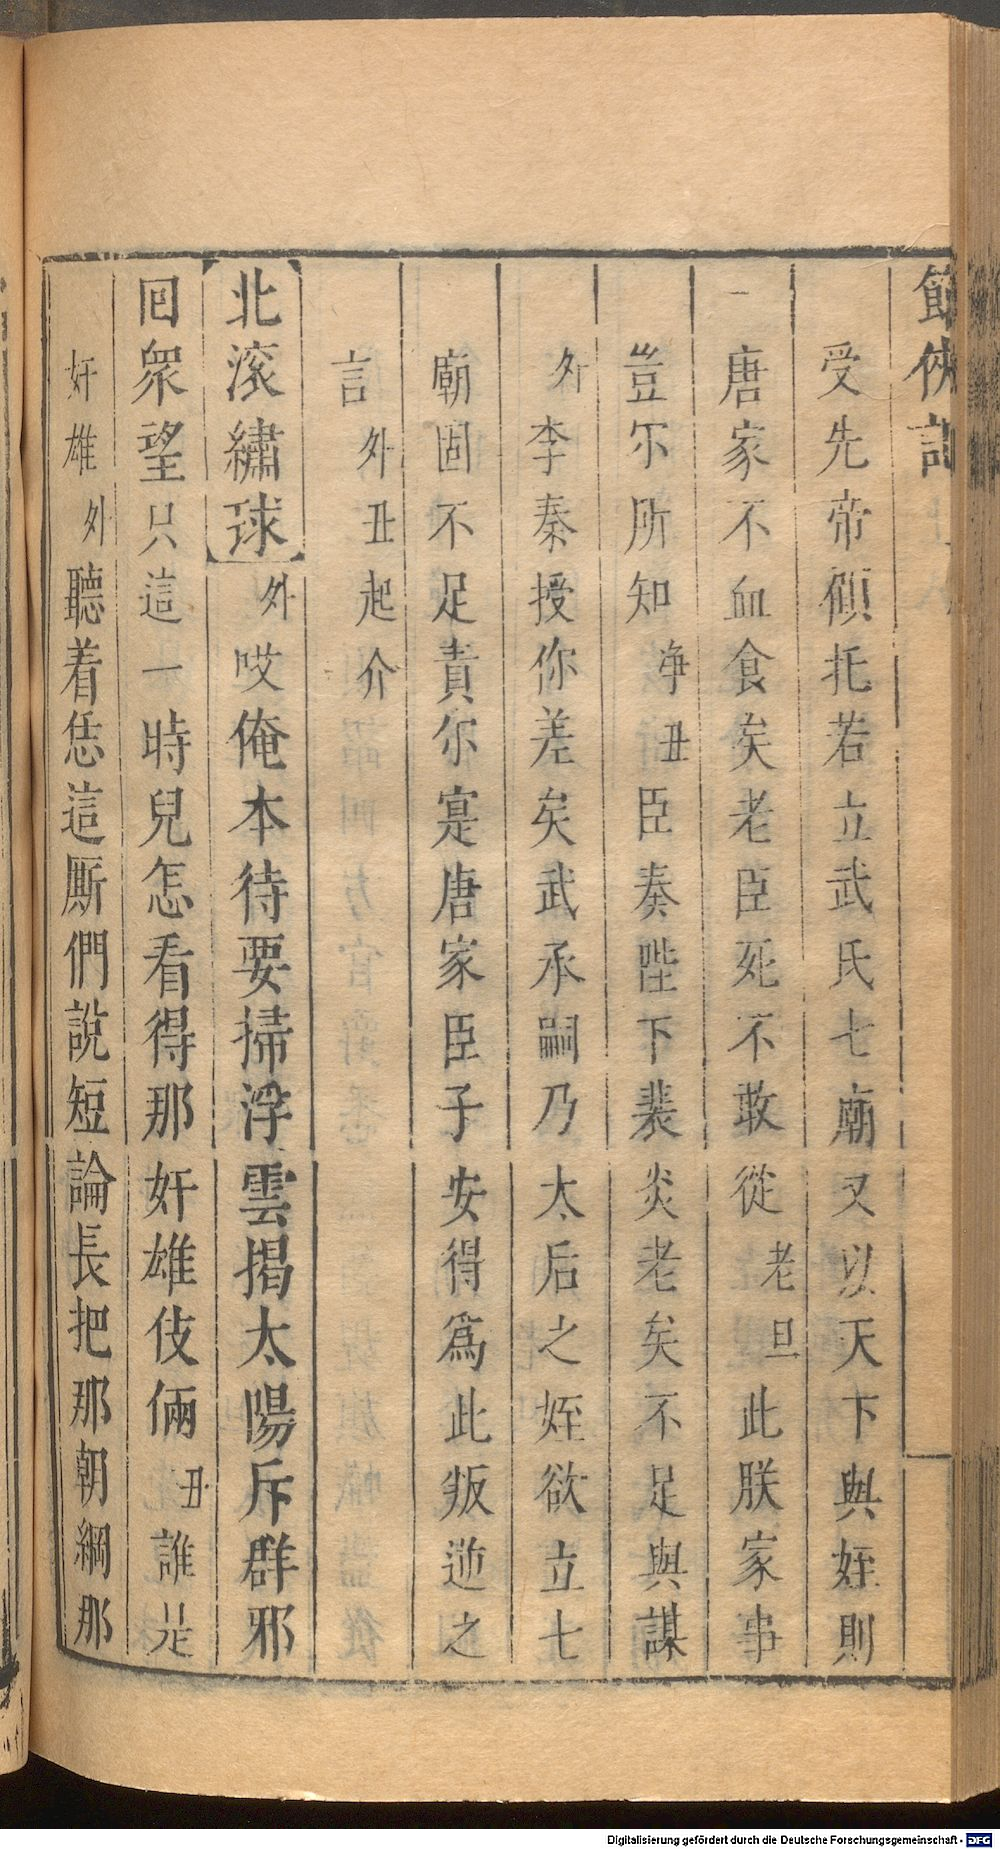 節俠記
受先帝顧托若立武氏七廟又以天下與姪則
唐家不血食矣老臣死不敢從老旦此朕家事
豈尔所知净丑臣奏陛下裴炎老矣不足與謀
外李秦授你差矣武承嗣乃太后之姪欲立七
廟固不足責尔寔唐家臣子安得爲此叛逆之
言外丑起介
北滚繡球外哎俺本待要掃浮雲揭太陽斥群邪
回衆望只這一時兒怎看得那奸雄伎倆丑誰是
奸雄外聽着恁這厮們說短論長把那朝綱那
Digitalisierung gefördert durch die Deutsche Forschungsgemeinschaft - DFG